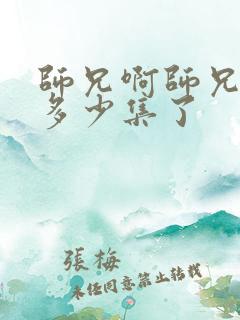 師兄啊師兄
多少集了
張梅
未经同意禁止转载